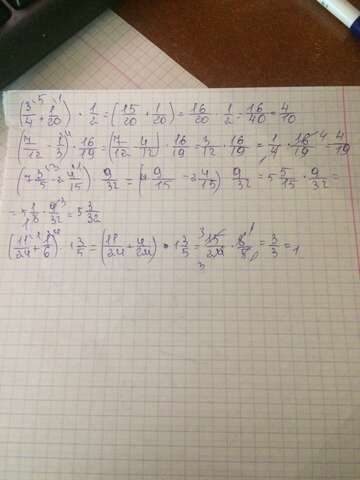 (3/4 + 1/20) · 1/2 = (15/20 + 1/20) = 16/20 · 1/2 = 16/40 = 4/10
(7/12 - 1/3) · 16/19 = (7/12 - 4/12) · 16/19 = 3/12 · 16/19 = 1/4 · 16/19 = 4/19
(7 3/5 - 2 4/15) · 9/32 = (7 9/15 - 2 4/15) · 9/32 = 5 5/15 · 9/32 =
= 5 1/3 · 9/32 = 5 3/32
(11/24 + 1/6) · 1 3/5 = (11/24 + 4/24) · 1 3/5 = 15/24 · 8/5 = 3/3 = 1